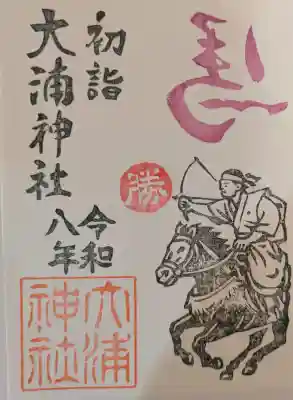 馬
初詣
大浦神社
勝
令和
八年
大浦
神社